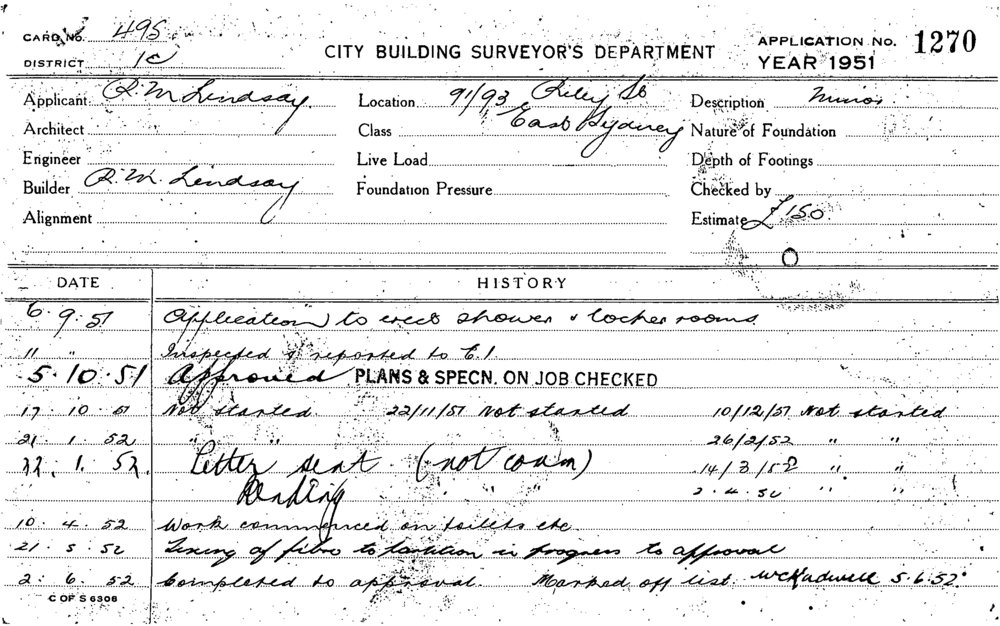 CARD No. 495
DISTRICT 1C
CITY BUILDING SURVEYOR'S DEPARTMENT
APPLICATION No. 1270
YEAR 1951
Applicant R. M Lindsay.
Location 91/93 Riley St
East Sydney
Description Minor
Architect
Class
Nature of Foundation
Engineer
Live Load
Depth of Footings
Builder R. M. Lindsay
Foundation Pressure
Checked by
Alignment
Estimate £150.
DATE HISTORY
6. 9. 51 Application to erect shower & locker rooms.
11 " Inspected & reported to C.I.
5. 10. 51 Approved PLANS & SPECN. ON JOB CHECKED
17. 10. 51 Not started 22/11/51 Not started 10/12/51 Not started
21. 1. 52 " " 26/2/52 " "
22. 1. 52. Letter sent (not com) 14/3/52 " "
Pending " " 2. 4. 52 " "
10. 4. 52 Work commenced on toilets etc.
21. 5. 52 Fixing of fibro to partition in progress to approval
2. 6. 52 Completed to approval. Marked off list. 5. 6. 52.
C OF S 6306